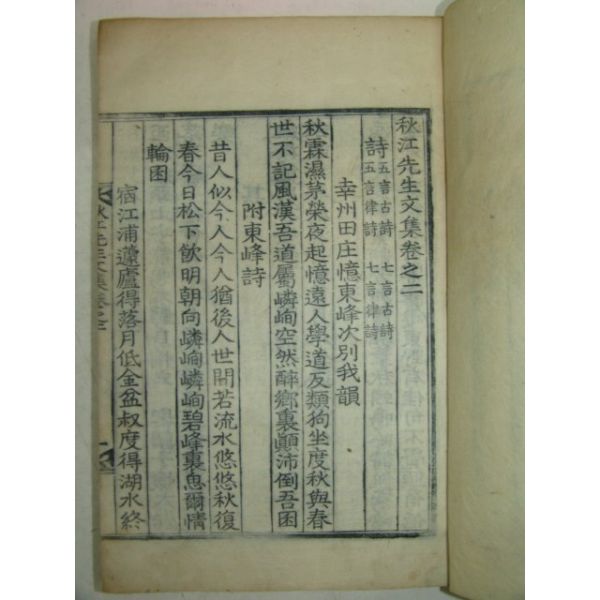 秋江先生文集卷之二
詩 五言古詩 七言古詩
五言律詩 七言律詩
幸州田庄憶東峰次別我韻
秋霖濕茅榮夜起憶遠人學道反類狗坐度秋與春
世不記風漢吾道屬嶙峋空然醉鄉裏顛沛倒吾囷
附東峰詩
昔人似今人今人猶後人世間若流水悠悠秋復
春今日松下飮明朝向嶙峋嶙峋碧峰裏思爾情
輪囷
宿江浦蘧廬得落月低金盆叔度得湖水終